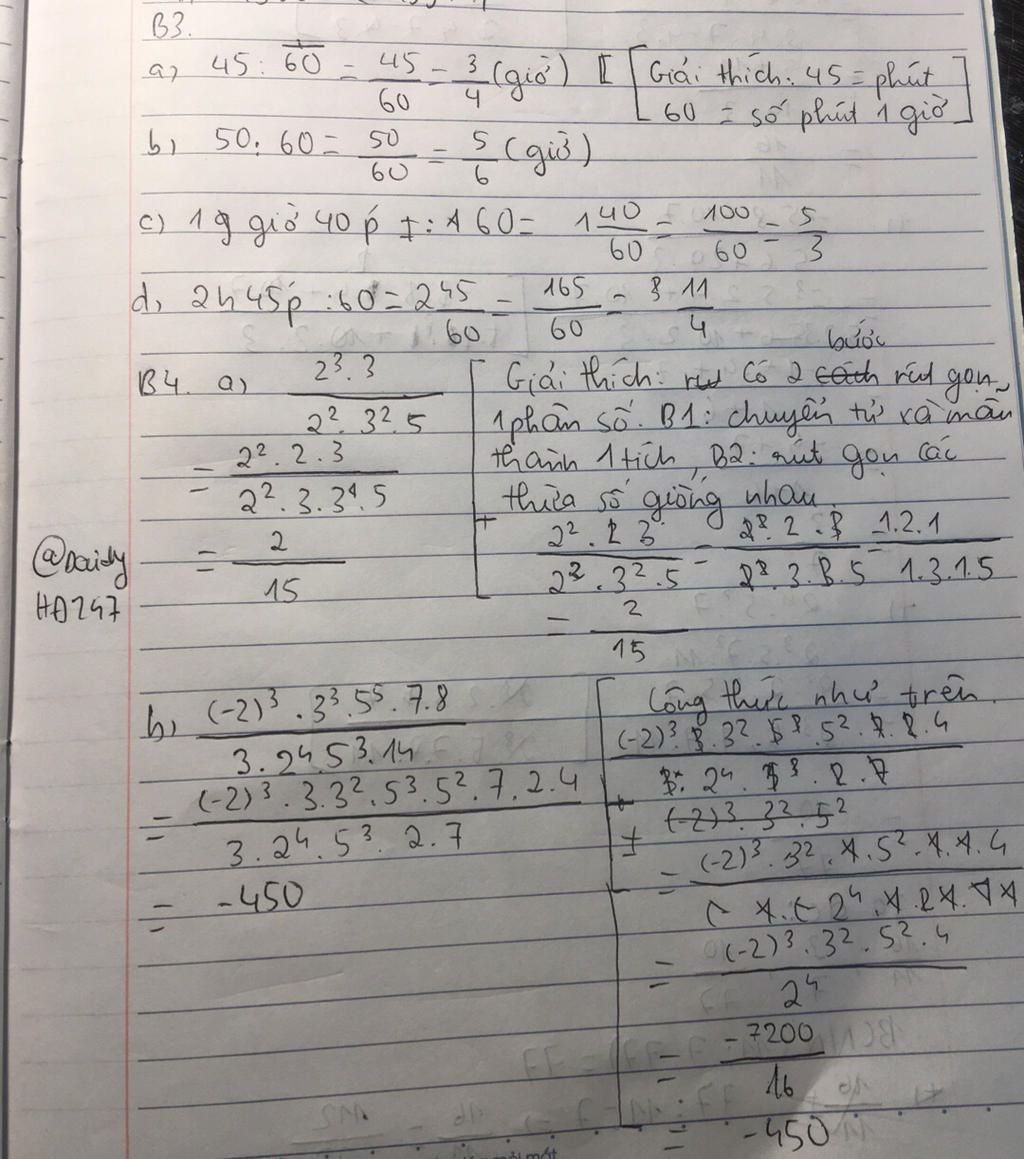 B3.
a) 45 : 60 = 45/60 = 3/4 (giờ) [Giải thích: 45 = phút
60 = số phút 1 giờ]
b) 50 : 60 = 50/60 = 5/6 (giờ)
c) 1 giờ 40 p : 60 = 1 40/60 = 100/60 = 5/3
d) 2h 45p : 60 = 2 45/60 = 165/60 = 11/4
B4. a) 2³.3 / 2².3².5
= 2².2.3 / 2².3.3¹.5
= 2/15
[Giải thích: Có 2 bước rút gọn
1 phân số. B1: chuyển tử và mẫu
thành 1 tích, B2: rút gọn các
thừa số giống nhau
2².2 3 / 2².3².5 = 2².2.3 / 2².3.3.5 = 1.2.1 / 1.3.1.5
= 2/15
@Daisy
HĐ247
b) (-2)³.3³.5⁵.7.8 / 3.2⁴.5³.14
= (-2)³.3.3².5³.5².7.2.4 / 3.2⁴.5³.2.7
= -450
[Công thức như trên
(-2)³.3.3².5³.5².7.2.4 / 3.2⁴.5³.2.7
(-2)³.3².5²
= (-2)³.3².1.5².1.1.4 / 1.2⁴.1.1.1
= (-2)³.3².5².4 / 2⁴
= -7200/16
= -450